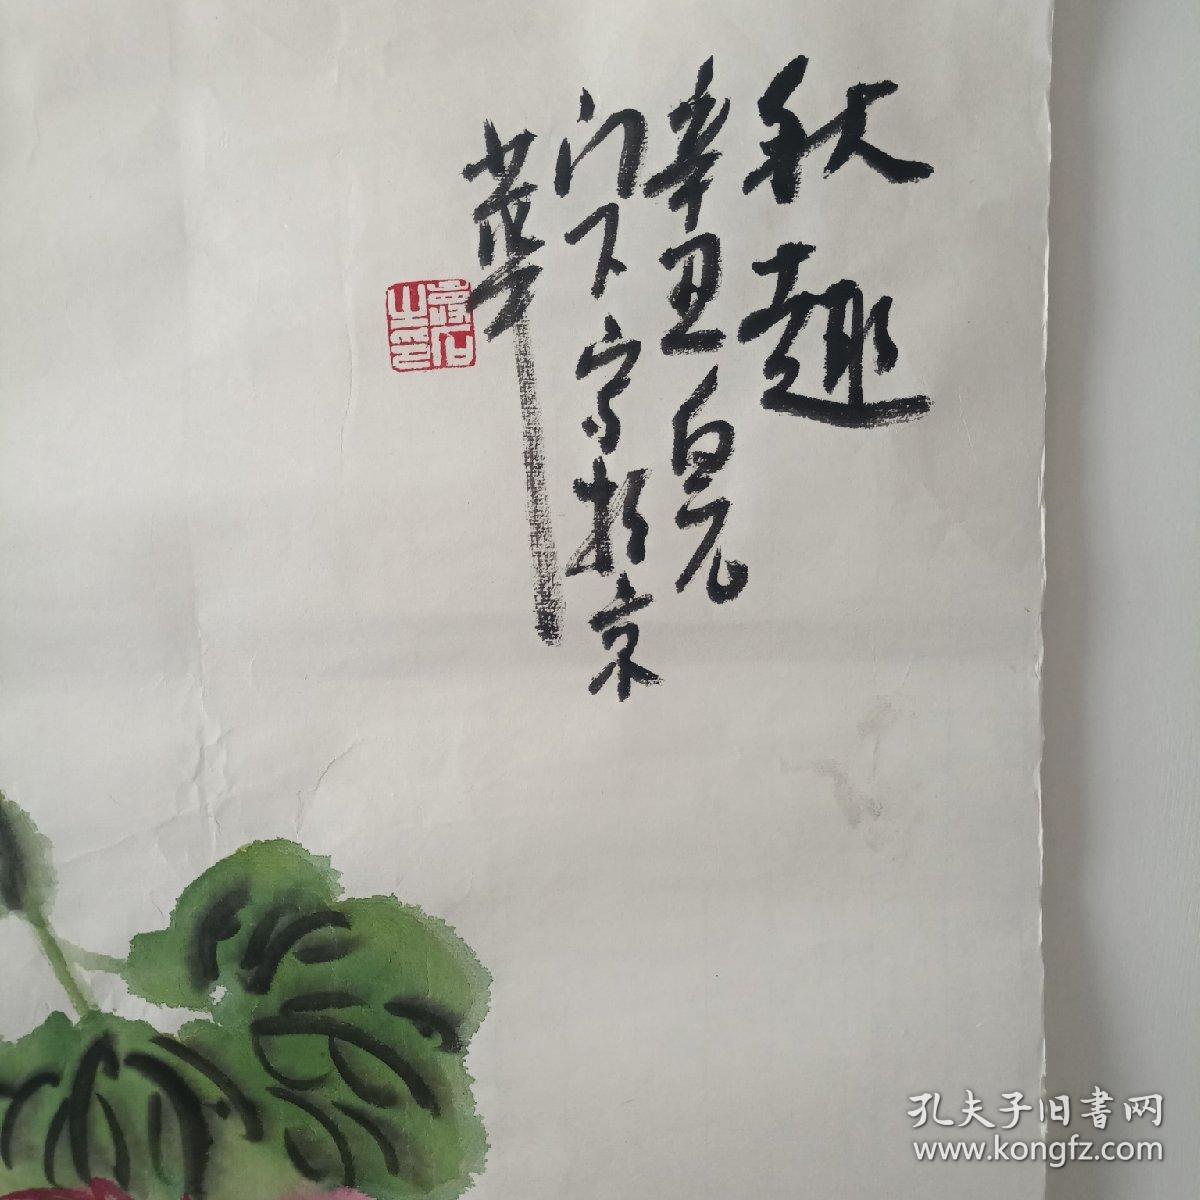 秋趣
辛丑白元
门下写于京
华
孔夫子旧書网
www.kongfz.com